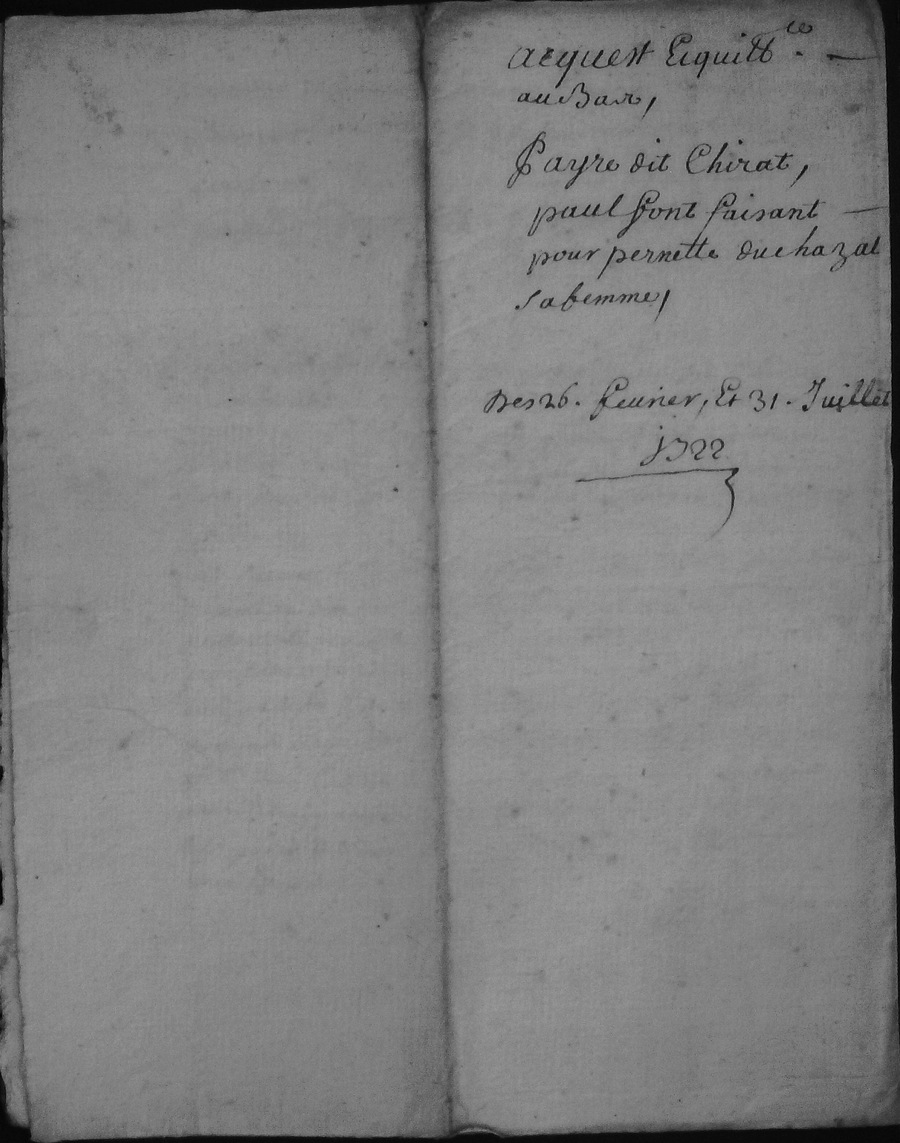 acquest Et quitt.ce
au Bas,
Payre dit Chirat,
paul font faisant
pour pernette duchazal
sa femme,
Des 26. feurier, Et 31. Juillet
1722